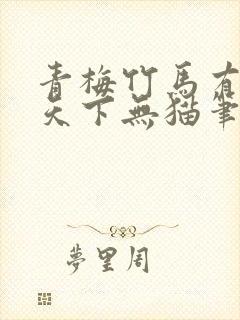 青梅竹馬有
天下無貓筆
夢里周